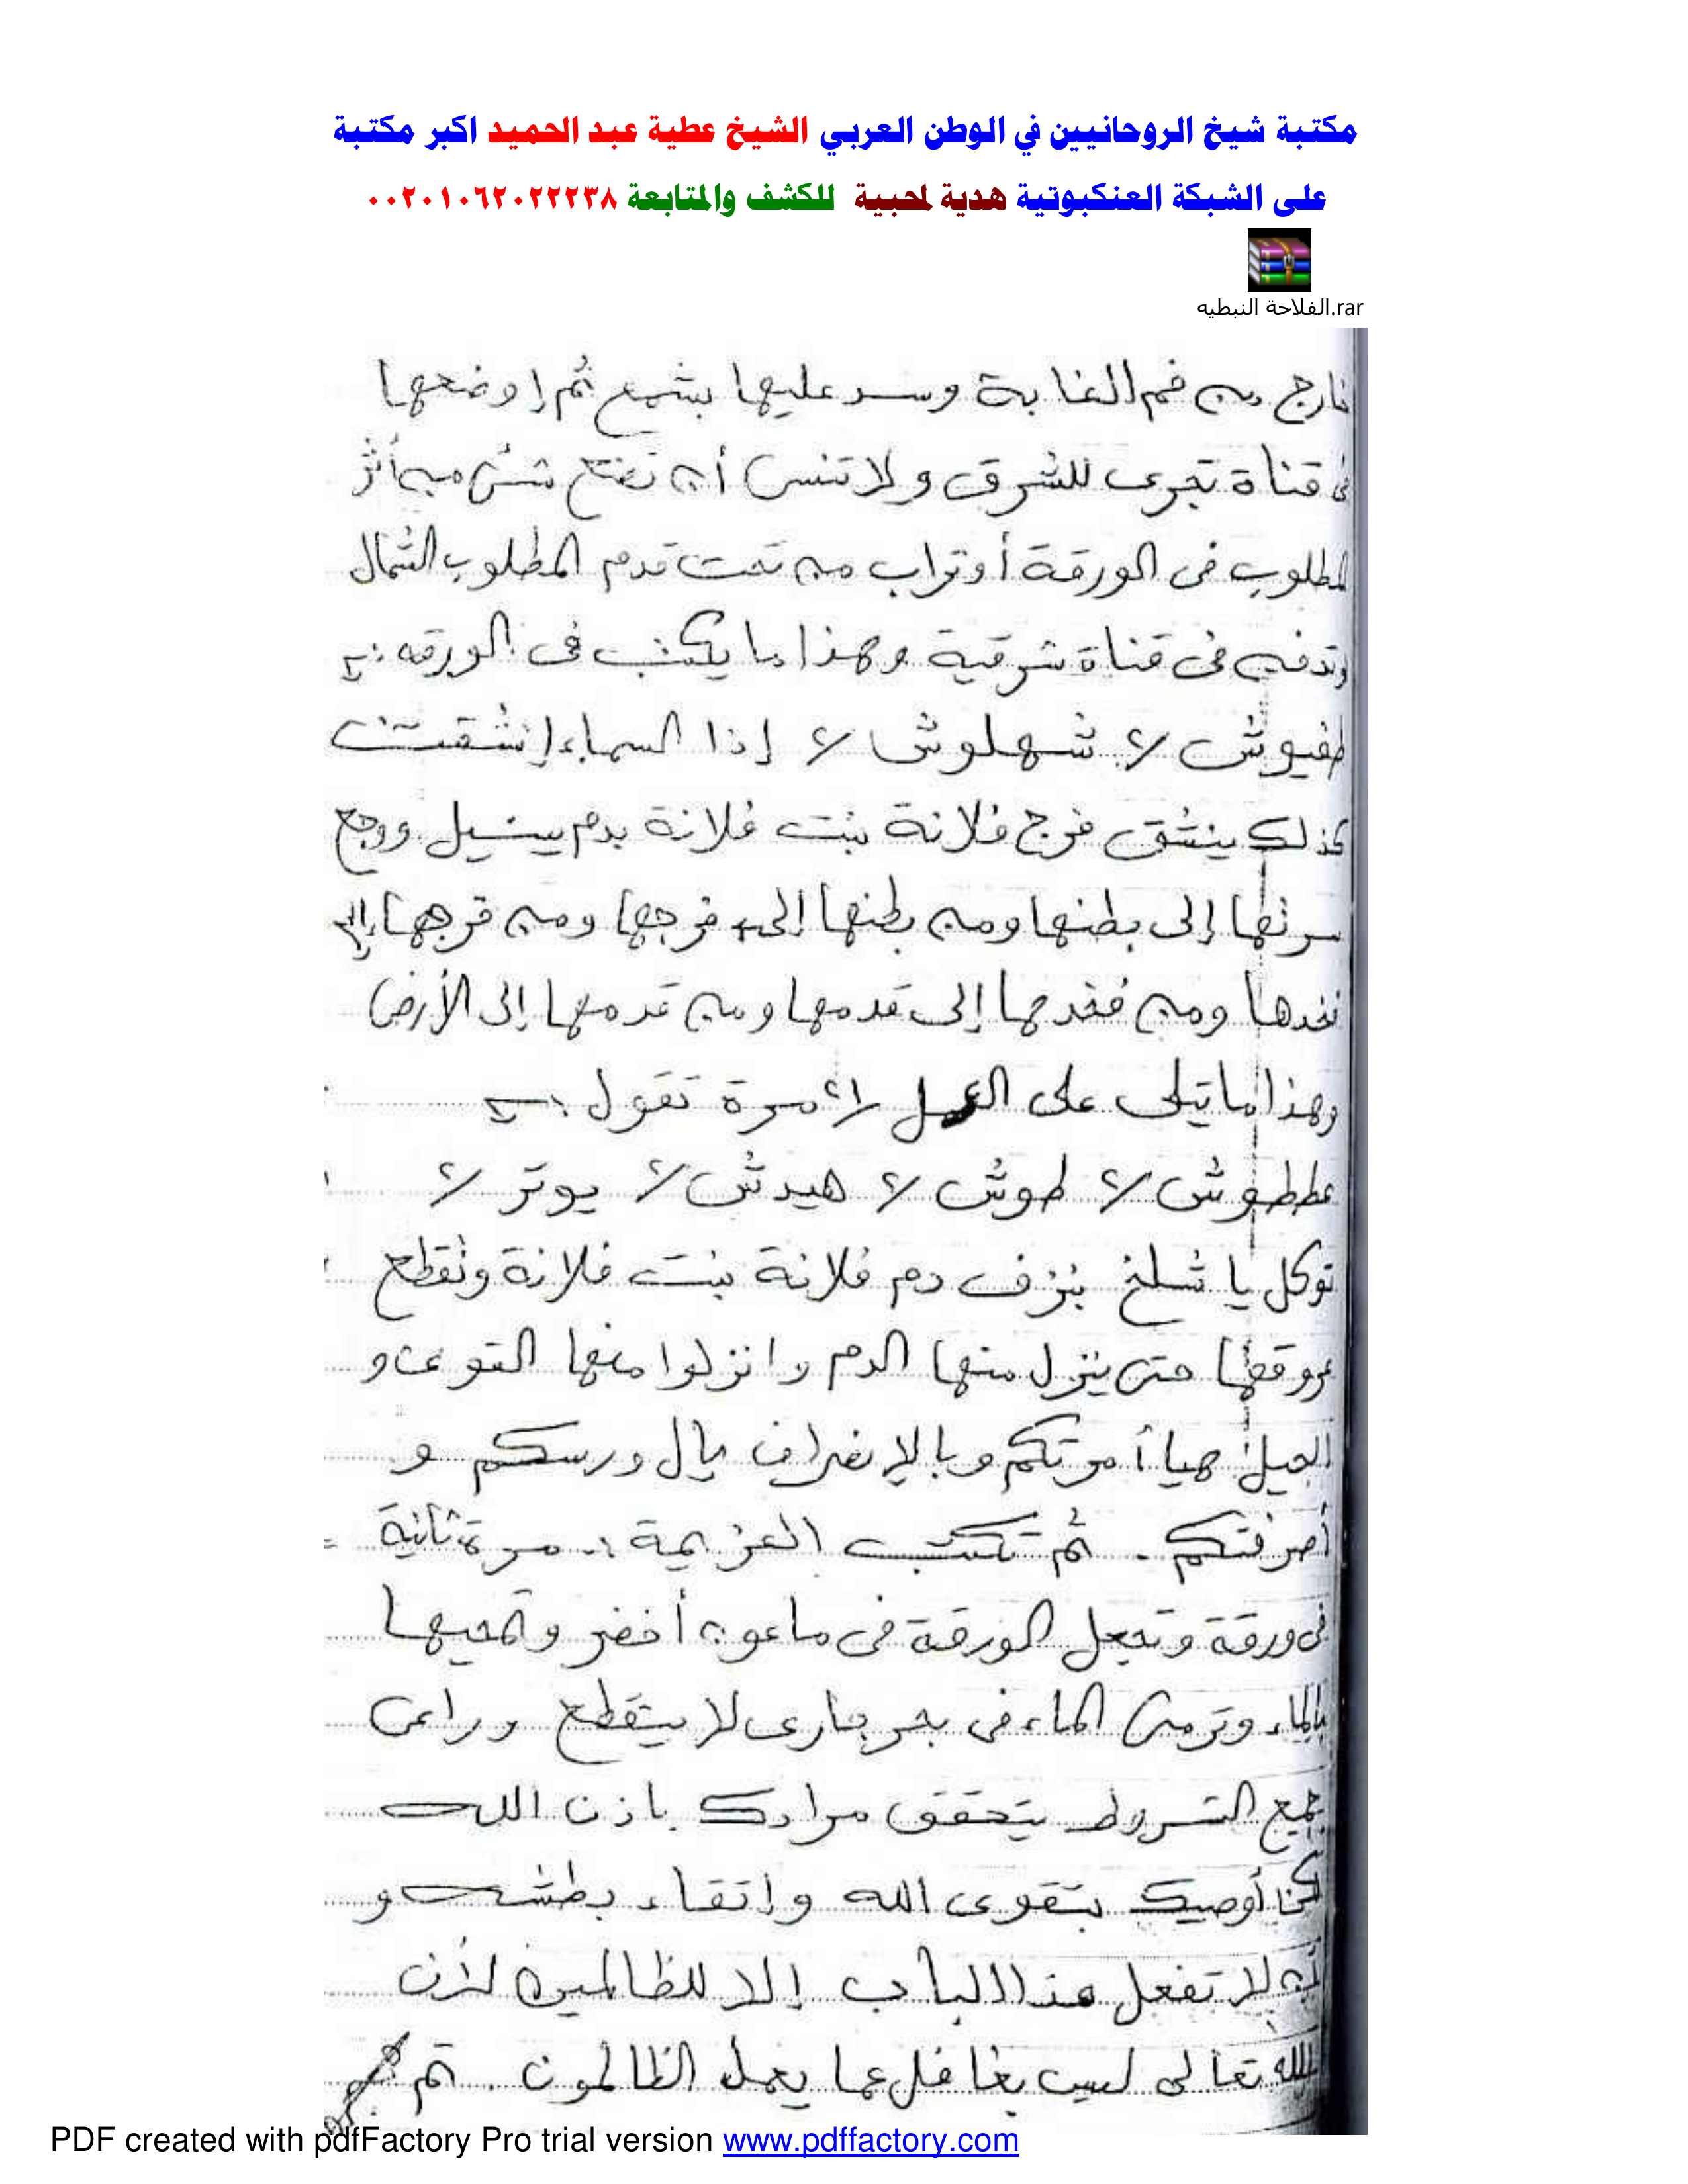 مكتبة شيخ الروحانيين في الوطن العربي الشيخ عطية عبد الحميد اكبر مكتبة
على الشبكة العنكبوتية هدية لمحبيبة للكشف والمتابعة ٠٠٢٠١٠٦٢٠٢٢٢٣٨
الفلاحة النبطيه.rar
خارج من فم الغابة وسد عليها بشمع ثم إوضعها
فى قناة تجرى للشرق ولا تنس أن تضع شئ من أثر
المطلوب فى الورقة أو تراب من تحت قدم المطلوب الشمال
وتدفن فى قناة شرقية وهذا ما يكتب فى الورقه :-
شهلوش ٢/ إذا السماء إنشقت
كذلك ينشق فرج فلانة بنت فلانة بدم يسيل ووجع
سرتها إلى بطنها ومن بطنها إلى فرجها ومن فرجها إلى
فخدها ومن فخدها إلى قدمها ومن قدمها إلى الأرض
وهذا ما يتلى على العمل مرة تقول :-
طوش ٢/ هيدش ٢/ يوتر ٢/
توكل يا شلخ بنزف دم فلانة بنت فلانة وتقطع
عروقها حتى ينزل منها الدم وانزلوا منها
هيا أمرتكم وبالإنصراف
أصرفتكم . ثم تكتب العزيمة :. مرة ثانية
فى ورقة وتجعل الورقة فى ماعون أخضر وتمحيها
بالماء وترمى الماء فى بحر جارى لا ينقطع وراعى
جميع الشروط يتحقق مرادك باذن الله
لكن أوصيك بتقوى الله وإتقاء بطشه و
أن لا تفعل هذا الباب إلا للظالمين لأن
الله تعالى ليس بغافل عما يعمل الظالمون . تم
PDF created with pdfFactory Pro trial version www.pdffactory.com